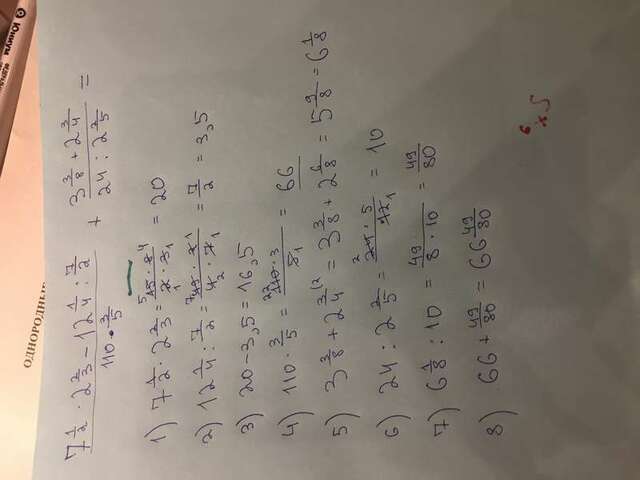 7 1/2 · 2 2/3 − 12 1/4 : 7/2 / 110 · 3/5 + 3 3/8 + 2 3/4 / 24 : 2 2/5 =
1) 7 1/2 · 2 2/3 = 15 · 8 / 2 · 3 = 20
2) 12 1/4 : 7/2 = 49 · 2 / 4 · 7 = 7/2 = 3,5
3) 20 − 3,5 = 16,5
4) 110 · 3/5 = 110 · 3 / 5 = 66
5) 3 3/8 + 2 3/4 = 3 3/8 + 2 6/8 = 5 9/8 = 6 1/8
6) 24 : 2 2/5 = 24 · 5 / 12 = 10
7) 6 1/8 : 10 = 49 / 8 · 10 = 49/80
8) 66 + 49/80 = 66 49/80
ОДНОРОДНЫЕ